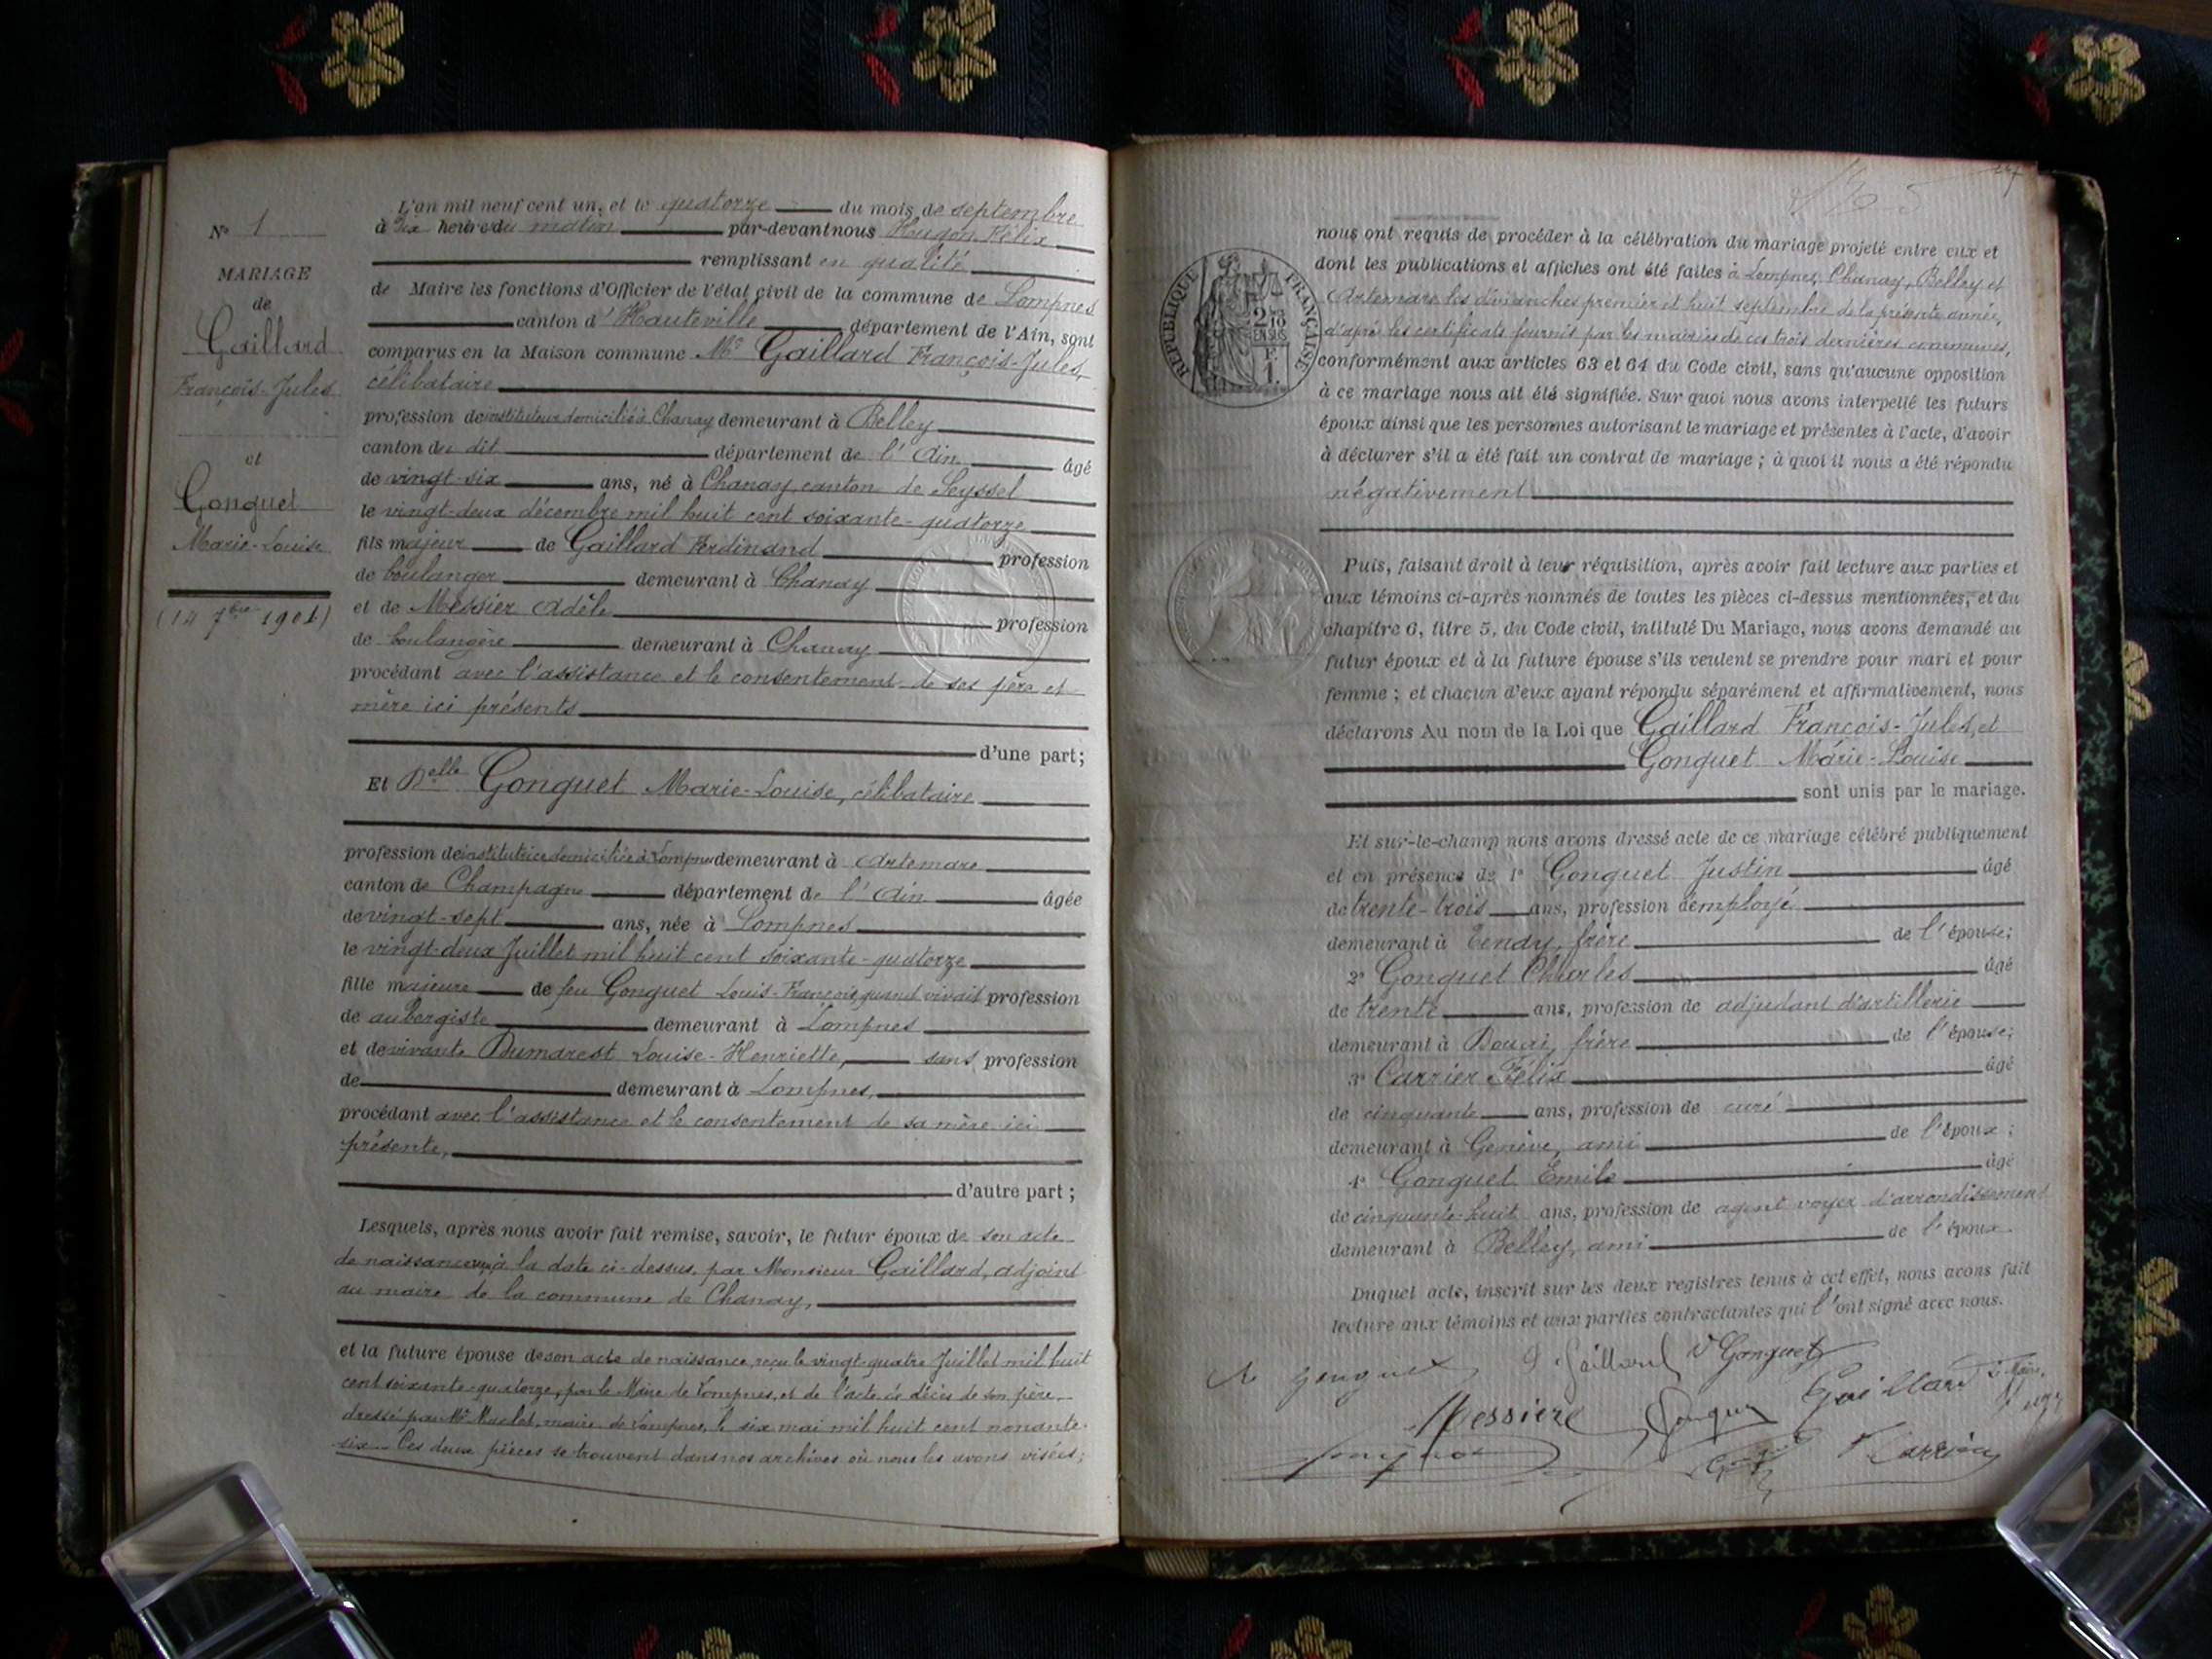 N° 1
MARIAGE
de
Gaillard
François-Jules
et
Gonguet
Marie-Louise
(14 7bre 1901)
L'an mil neuf cent un, et le quatorze du mois de septembre
à dix heures du matin par-devant nous Hugon Félix
remplissant en qualité
de Maire les fonctions d'Officier de l'état civil de la commune de Lompnes
canton d'Hauteville département de l'Ain, sont
comparus en la Maison commune Mr Gaillard François-Jules,
célibataire
profession de instituteur domicilié à Chanay demeurant à Belley
canton du dit département de l'Ain âgé
de vingt-six ans, né à Chanay, canton de Seyssel
le vingt-deux décembre mil huit cent soixante-quatorze
fils majeur de Gaillard Ferdinand profession
de boulanger demeurant à Chanay
et de Messier Adèle profession
de boulangère demeurant à Chanay
procédant avec l'assistance et le consentement de ses père et
mère ici présents
d'une part;
Et Delle Gonguet Marie-Louise, célibataire
profession de institutrice domiciliée à Lompnes demeurant à Artemare
canton de Champagne département de l'Ain âgée
de vingt-sept ans, née à Lompnes
le vingt-deux Juillet mil huit cent soixante-quatorze
fille majeure de feu Gonguet Louis-François, quand vivait profession
de aubergiste demeurant à Lompnes
et de vivante Dumarest Louise-Henriette, sans profession
de demeurant à Lompnes,
procédant avec l'assistance et le consentement de sa mère ici
présente,
d'autre part;
Lesquels, après nous avoir fait remise, savoir, le futur époux de son acte
de naissance à la date ci-dessus, par Monsieur Gaillard, adjoint
au maire de la commune de Chanay,
et la future épouse de son acte de naissance, reçu le vingt-quatre Juillet mil huit
cent soixante-quatorze, par le Maire de Lompnes, et de l'acte de décès de son père
dressé par Mr maire de Lompnes, le six mai mil huit cent nonante-
six. Ces deux pièces se trouvent dans nos archives où nous les avons visées;
REPUBLIQUE FRANÇAISE
2/10
EN SUS
F.
1
nous ont requis de procéder à la célébration du mariage projeté entre eux et
dont les publications et affiches ont été faites à Lompnes, Chanay, Belley et
Artemare les dimanches premier et huit septembre de la présente année,
d'après les certificats fournis par les mairies de ces trois dernières communes,
conformément aux articles 63 et 64 du Code civil, sans qu'aucune opposition
à ce mariage nous ait été signifiée. Sur quoi nous avons interpellé les futurs
époux ainsi que les personnes autorisant le mariage et présentes à l'acte, d'avoir
à déclarer s'il a été fait un contrat de mariage; à quoi il nous a été répondu
négativement
Puis, faisant droit à leur réquisition, après avoir fait lecture aux parties et
aux témoins ci-après nommés de toutes les pièces ci-dessus mentionnées, et du
chapitre 6, titre 5, du Code civil, intitulé Du Mariage, nous avons demandé au
futur époux et à la future épouse s'ils veulent se prendre pour mari et pour
femme; et chacun d'eux ayant répondu séparément et affirmativement, nous
déclarons Au nom de la Loi que Gaillard François-Jules, et
Gonguet Marie-Louise
sont unis par le mariage.
Et sur-le-champ nous avons dressé acte de ce mariage célébré publiquement
et en présence de 1° Gonguet Justin âgé
de trente-trois ans, profession d'employé
demeurant à Tendy, frère de l'épouse;
2° Gonguet Charles âgé
de trente ans, profession de adjudant d'artillerie
demeurant à Douai, frère de l'épouse;
3° Carrier Félix âgé
de cinquante ans, profession de curé
demeurant à Genève, ami de l'époux;
4° Gonguet Emile âgé
de cinquante-huit ans, profession de agent voyer d'arrondissement
demeurant à Belley, ami de l'époux
Duquel acte, inscrit sur les deux registres tenus à cet effet, nous avons fait
lecture aux témoins et aux parties contractantes qui l'ont signé avec nous.
Gonguet J Gaillard V Gonguet
Messière Gaillard
F Carrier